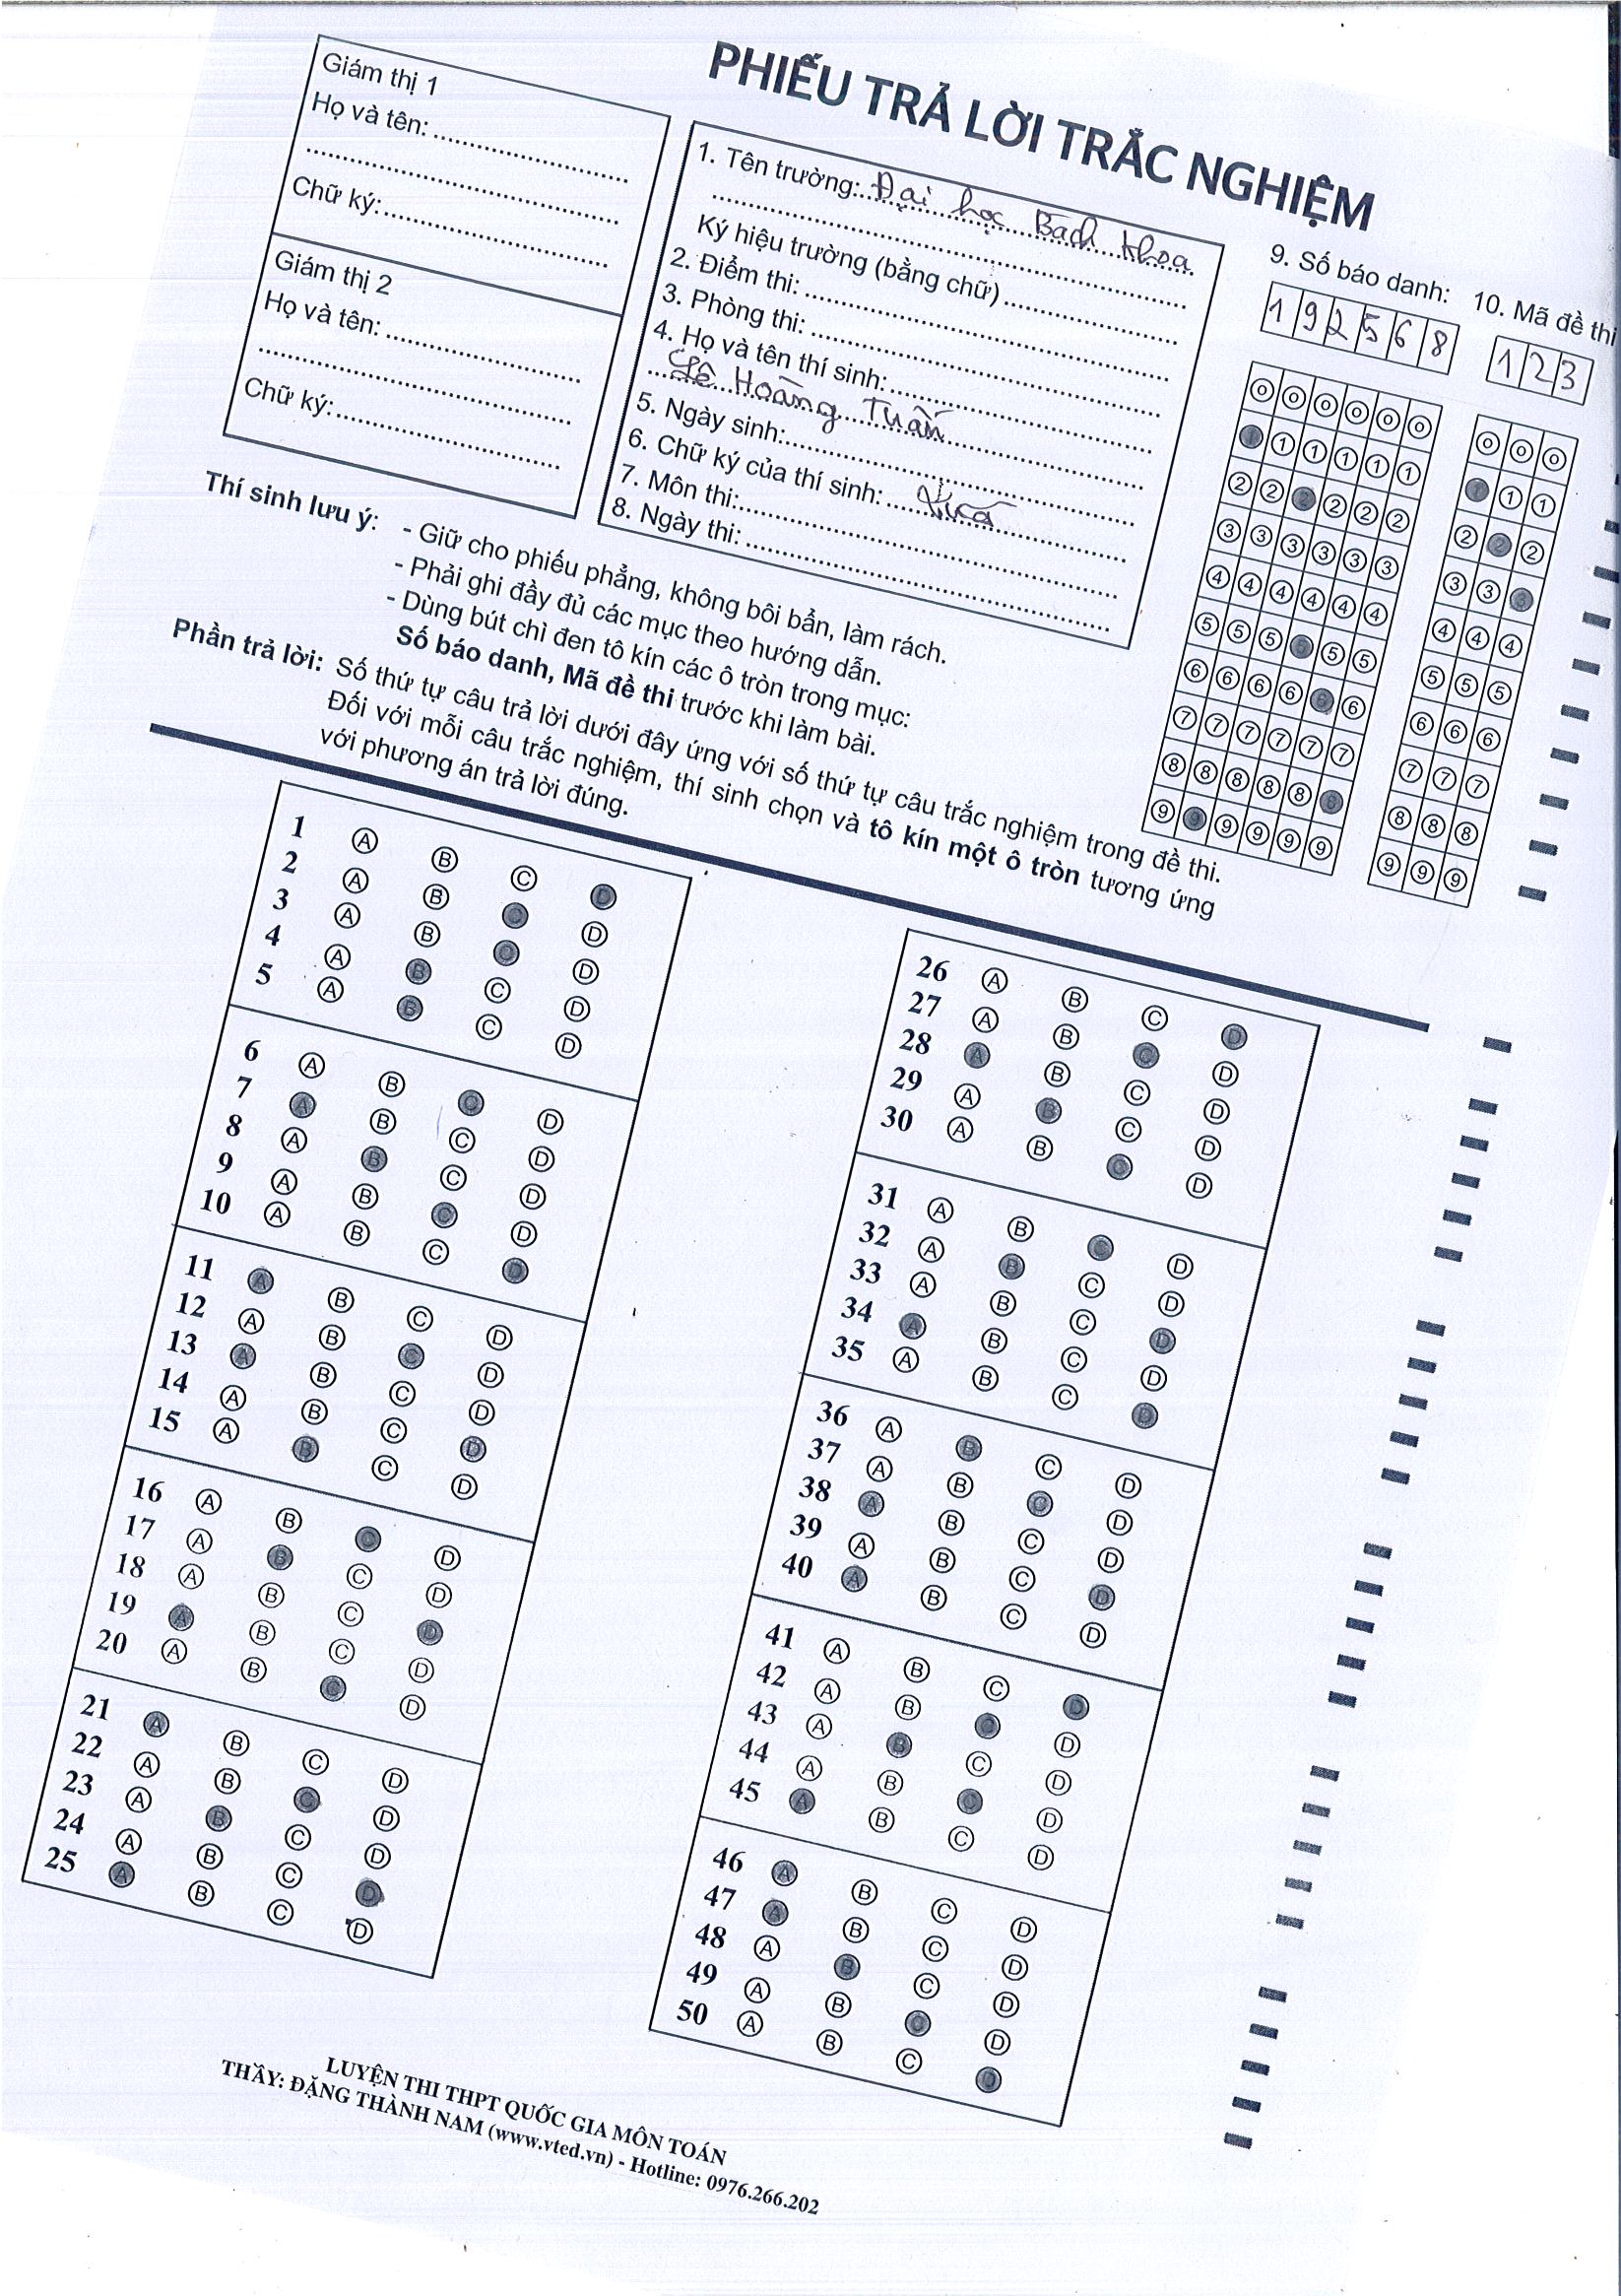 PHIẾU TRẢ LỜI TRẮC NGHIỆM
Giám thị 1
Họ và tên: ..............................
................................................
Chữ ký: ..................................
Giám thị 2
Họ và tên: ..............................
................................................
Chữ ký: ..................................
1. Tên trường: Đại học Bách Khoa
Ký hiệu trường (bằng chữ) ..........................
2. Điểm thi: ..........................
3. Phòng thi: ..........................
4. Họ và tên thí sinh: ..........................
Lê Hoàng Tuấn
5. Ngày sinh: ..........................
6. Chữ ký của thí sinh: ..........................
7. Môn thi: ..........................
8. Ngày thi: ..........................
9. Số báo danh:
1 9 2 5 6 8
0 0 0 0 0 0
1 1 1 1 1 1
2 2 2 2 2 2
3 3 3 3 3 3
4 4 4 4 4 4
5 5 5 5 5 5
6 6 6 6 6 6
7 7 7 7 7 7
8 8 8 8 8 8
9 9 9 9 9 9
10. Mã đề thi
1 2 3
0 0 0
1 1 1
2 2 2
3 3 3
4 4 4
5 5 5
6 6 6
7 7 7
8 8 8
9 9 9
Thí sinh lưu ý: - Giữ cho phiếu phẳng, không bôi bẩn, làm rách.
- Phải ghi đầy đủ các mục theo hướng dẫn.
- Dùng bút chì đen tô kín các ô tròn trong mục:
Số báo danh, Mã đề thi trước khi làm bài.
Phần trả lời: Số thứ tự câu trả lời dưới đây ứng với số thứ tự câu trắc nghiệm trong đề thi.
Đối với mỗi câu trắc nghiệm, thí sinh chọn và tô kín một ô tròn tương ứng
với phương án trả lời đúng.
1 A B C D
2 A B C D
3 A B C D
4 A B C D
5 A B C D
6 A B C D
7 A B C D
8 A B C D
9 A B C D
10 A B C D
11 A B C D
12 A B C D
13 A B C D
14 A B C D
15 A B C D
16 A B C D
17 A B C D
18 A B C D
19 A B C D
20 A B C D
21 A B C D
22 A B C D
23 A B C D
24 A B C D
25 A B C D
26 A B C D
27 A B C D
28 A B C D
29 A B C D
30 A B C D
31 A B C D
32 A B C D
33 A B C D
34 A B C D
35 A B C D
36 A B C D
37 A B C D
38 A B C D
39 A B C D
40 A B C D
41 A B C D
42 A B C D
43 A B C D
44 A B C D
45 A B C D
46 A B C D
47 A B C D
48 A B C D
49 A B C D
50 A B C D
LUYỆN THI THPT QUỐC GIA MÔN TOÁN
THẦY: ĐẶNG THÀNH NAM (www.vted.vn) - Hotline: 0976.266.202